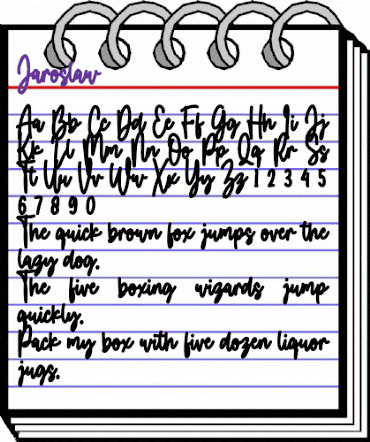 Jaroslaw
Aa Bb Cc Dd Ee Ff Gg Hh Ii Jj
Kk Ll Mm Nn Oo Pp Qq Rr Ss
Tt Uu Vv Ww Xx Yy Zz 1 2 3 4 5
6 7 8 9 0
The quick brown fox jumps over the
lazy dog.
The five boxing wizards jump
quickly.
Pack my box with five dozen liquor
jugs.